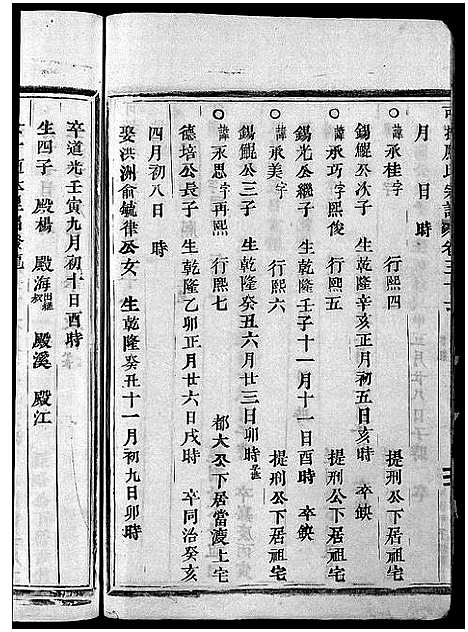 月　日　時
○諱承桂字　行熙四　提刑公下居祖宅
錫鯤公次子　生乾隆辛亥正月初五日亥時　卒缺
○諱承巧字熙俊　行熙五　提刑公下居祖宅
錫光公繼子　生乾隆壬子十一月十一日酉時　卒缺
○諱承美字　行熙六　提刑公下居祖宅
錫鯤公三子　生乾隆癸丑六月廿三日卯時
○諱永恩字再熙　行熙七　都大公下居當渡上宅
德培公長子　生乾隆乙卯正月廿六日戌時　卒同治癸亥
四月初八日　時
娶洪洲俞毓律公女　生乾隆癸丑十一月初九日卯時
卒道光壬寅九月初十日酉時
生四子　殿楊　殿海出繼　殿溪　殿江